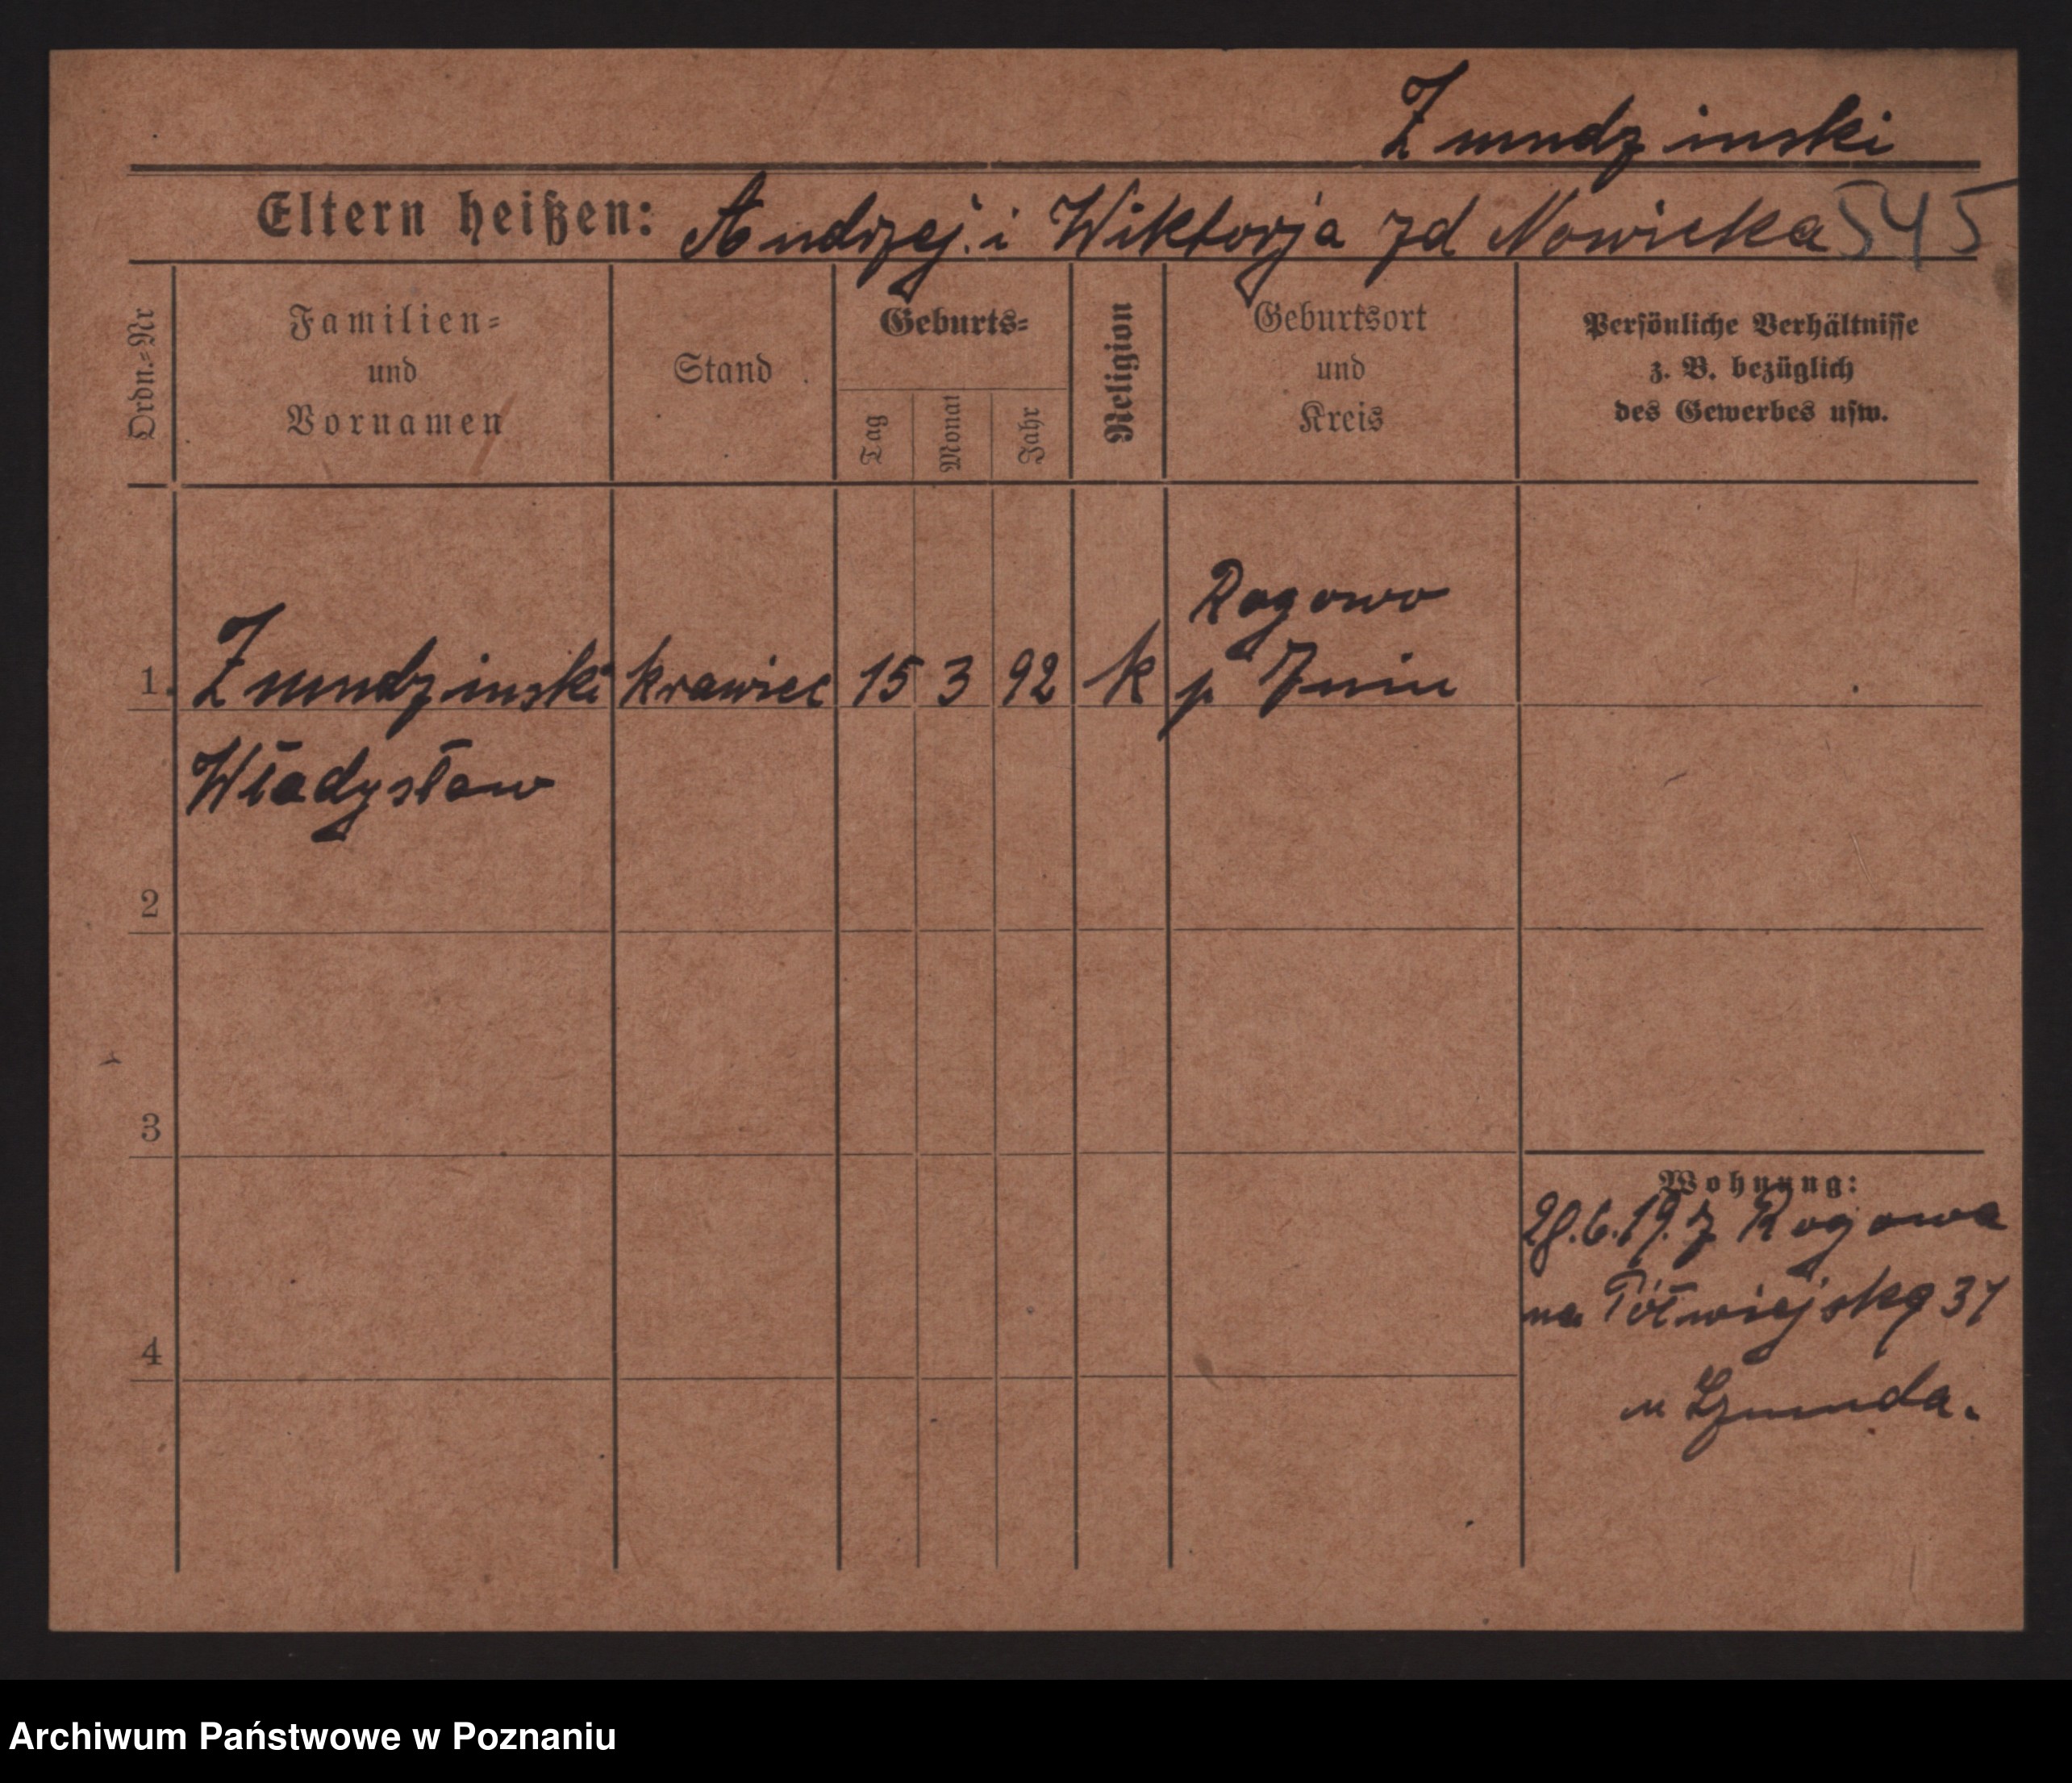 Zmudzinski
Eltern heißen: Andrzej i Wiktorja zd Nowicka 545
Ordn.=Nr
Familien=
und
Vornamen
Stand
Geburts=
Tag
Monat
Jahr
Religion
Geburtsort
und
Kreis
Persönliche Verhältnisse
z. B. bezüglich
des Gewerbes usw.
Rogowo
1. Zmudzinski krawiec 15 3 92 k p Żnin
Władysław
2
3
Wohnung:
28.6.19. z Rogowa
na Półwiejską 37
4
u